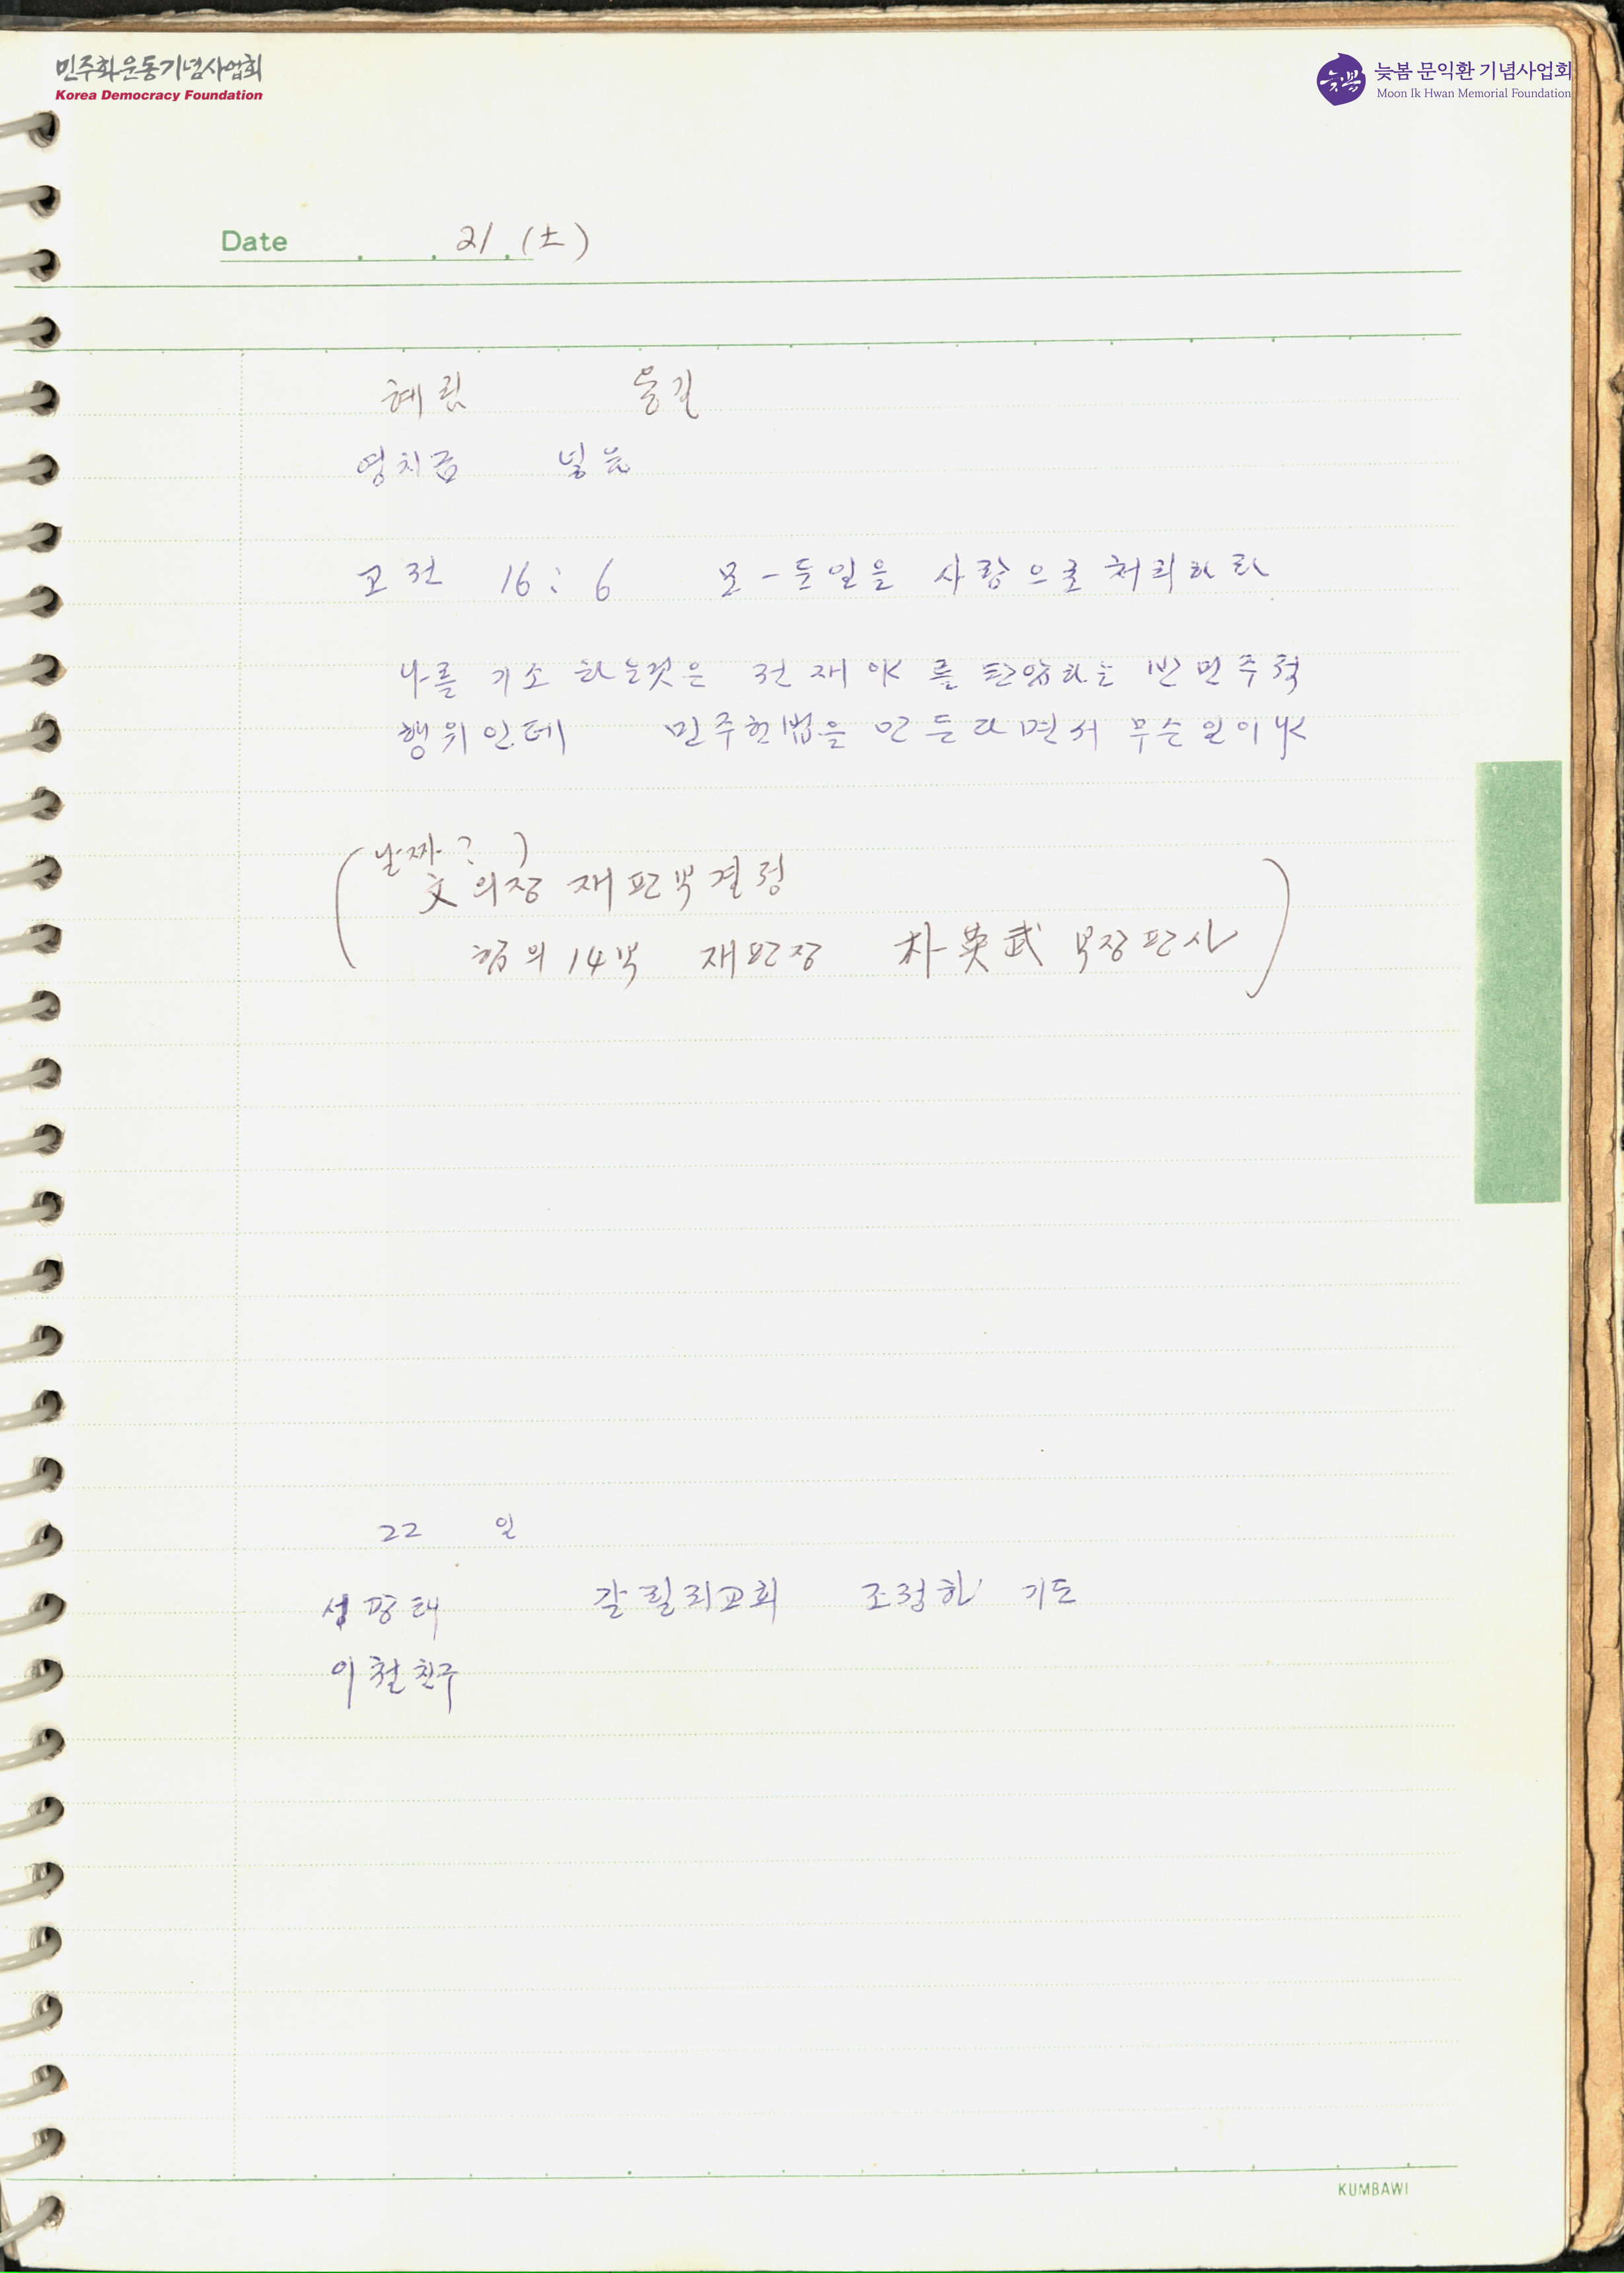 민주화운동기념사업회
Korea Democracy Foundation
늦봄 문익환 기념사업회
Moon Ik Hwan Memorial Foundation
늦봄
Date . . 21 . (土)
혜림 용길
영치금 넣음
고전 16:6 모-든일을 사랑으로 처리하라
나를 기소 하는것은 전재야를 탄압하는 반민주적
행위인데 민주헌법을 만든다면서 무슨일이냐
(날짜? )
文의장 재판부결정
합의14부 재판장 朴英武 부장판사
22 일
성광태 갈릴리교회 조정하 기도
이철친구
KUMBAWI